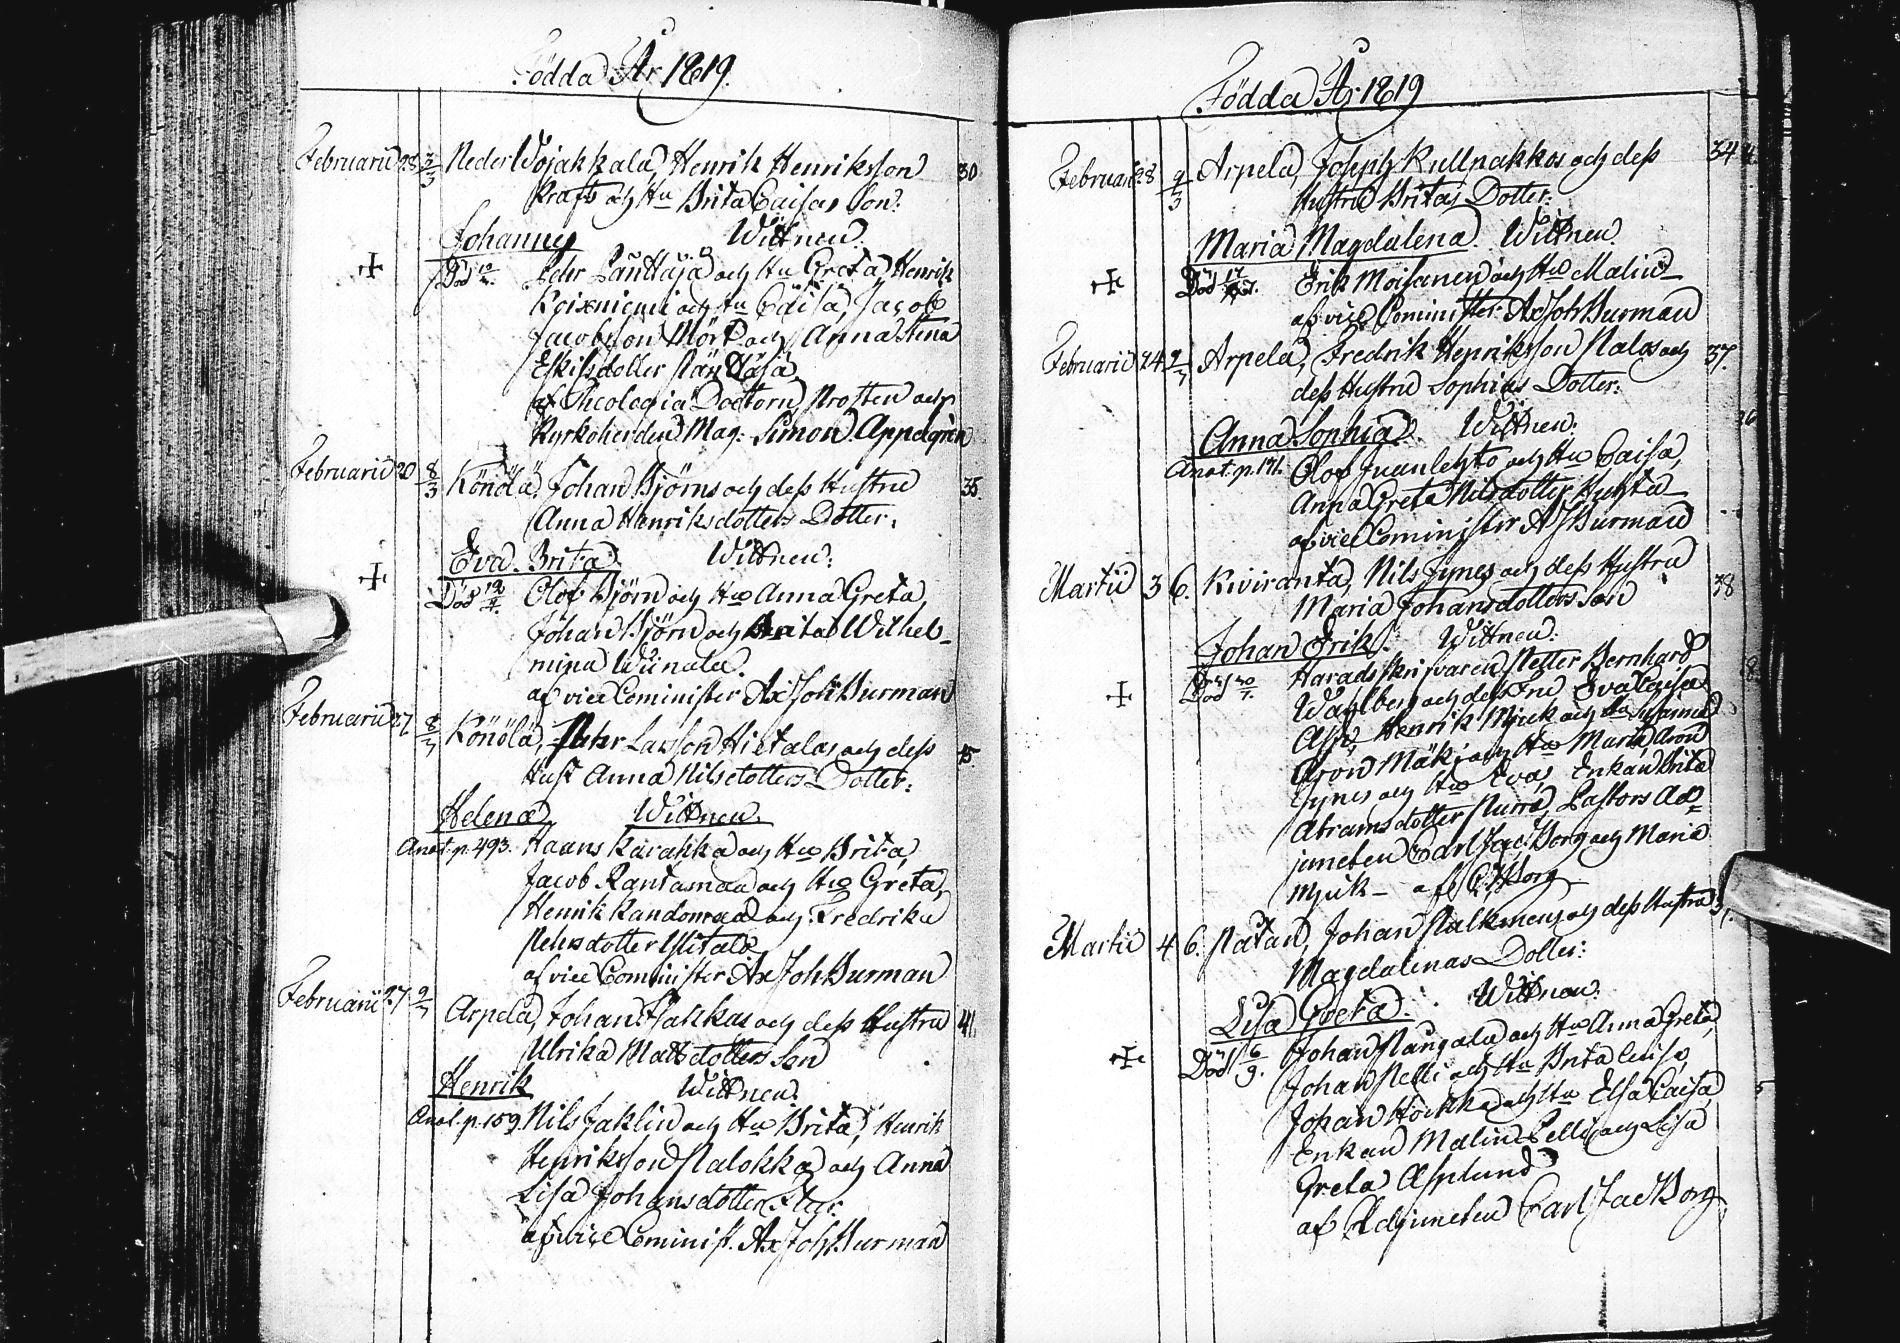 Födda År 1819.
Februarii 28 2/3 Neder Wojakkala, Henrik Henriksson 30
Krafts och Hu Brita Caisas Son:
Johannes Wittnen.
Död Pehr Lanttaja och Hu Greta, Henrik
och Hu Caisa, Jacob
Jacobsson Mört och Anna Stina
Eskilsdotter
af Theologiæ Doctorn Prosten och
Kyrkoherden Mag: Simon Appelgren
Februarii 20 8/3 Könölä, Johan Björns och dess Hustru 35.
Anna Henriksdotters Dotter:
Eva Brita. Wittnen:
Död 12/4. Olof Björn och Hu Anna Greta,
Johan Björn och Brita Wilhel-
mina Wiinala.
af vice Cominister Ax Joh Burman
Februarii 27 8/3 Könölä, Pehr Larsson Hietalas och dess 45
Hust Anna Nilsdotters Dotter:
Helena Wittnen.
Anot. p. 493. Haans Karahka och Hu Brita,
Jacob Randamaa och Hu Greta,
Henrik Randamaa och Fredrika
Pehrsdotter Hitala
af vice Cominister Ax Joh Burman
Februarii 27 9/3 Arpela, Johan Hakkas och dess Hustru 41.
Ulrika Matsdotters Son
Henrik Wittnen.
Anot. p. 159. Nils Jaklin och Hu Brita, Henrik
Henriksson Palokka och Anna
Lisa Johansdotter
af vice Cominist. Ax Joh Burman
Födda År 1819
Februarii 28 9/3 Arpela, Joseph Kullnakkos och dess 34
Hustru Britas Dotter:
Maria Magdalena. Wittnen.
Död Erik Moisanen och Hu Malin
af vice Cominister Ax Joh Burman
Februarii 24 9/3 Arpela, Fredrik Henriksson Palos och 37.
dess Hustru Sophias Dotter:
Anna Sophia. Wittnen:
Anot. p. 191. Olof Juanlehto och Hu Caisa,
Anna Greta Nilsdotter Huhta
af vice Cominister Ax Burman
Martii 3 6. Kiviranta, Nils Jynes och dess Hustru 38
Maria Johansdotters Son
Johan Erik. Wittnen.
Död Häradsskrifvaren Petter Bernhard
Wahlberg och dess Fru Eva Lovisa
Henrik Mjuk och Hu Susanna,
Aron Mäki och Hu Maria, Aron
Jynes och Hu Eva, Enkan Brita
Abramsdotter Purra, Pastors Ad-
juncten Carl Jac Borg och Maria
Mjuk - af C J Borg
Martii 4 6. Ratan, Johan Palkmens och dess Hustru
Magdalenas Dotter:
Lisa Greta. Wittnen.
Död 6/9. Johan Naugala och Hu Anna Greta,
Johan Pelli och Hu Brita Caisa,
Johan Höckka och Hu Elsa Caisa
Enkan Malin Pelli och Lisa
Greta Asplund
af Adjuncten Carl Jac Borg